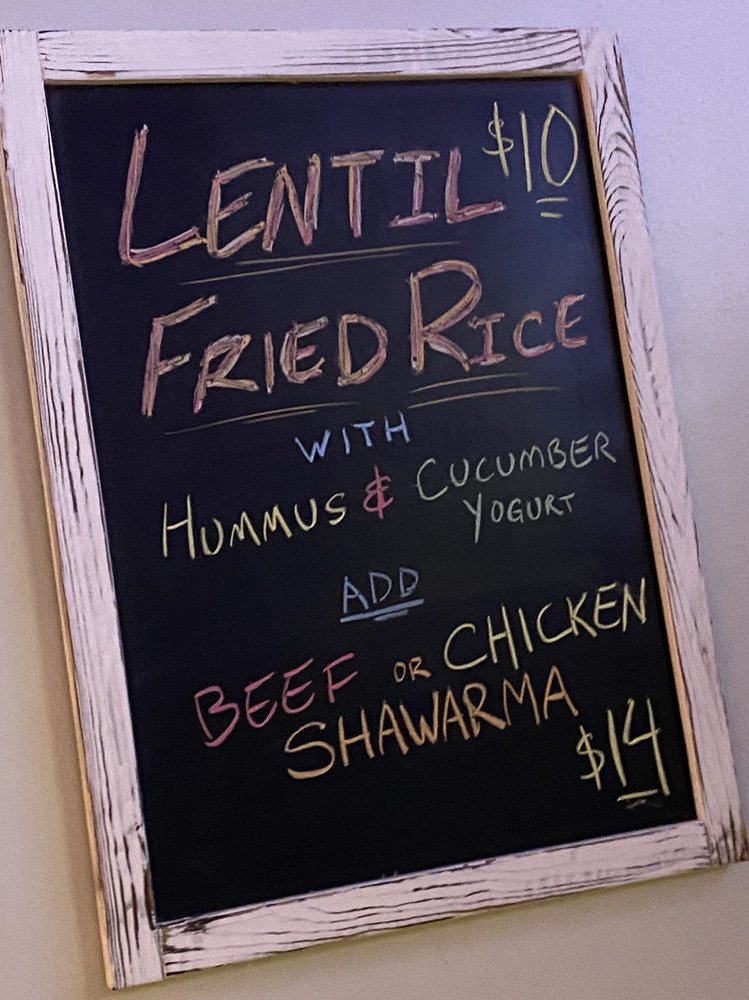 LENTIL $10
FRIED RICE
WITH
HUMMUS & CUCUMBER
YOGURT
ADD
BEEF OR CHICKEN
SHAWARMA
$14